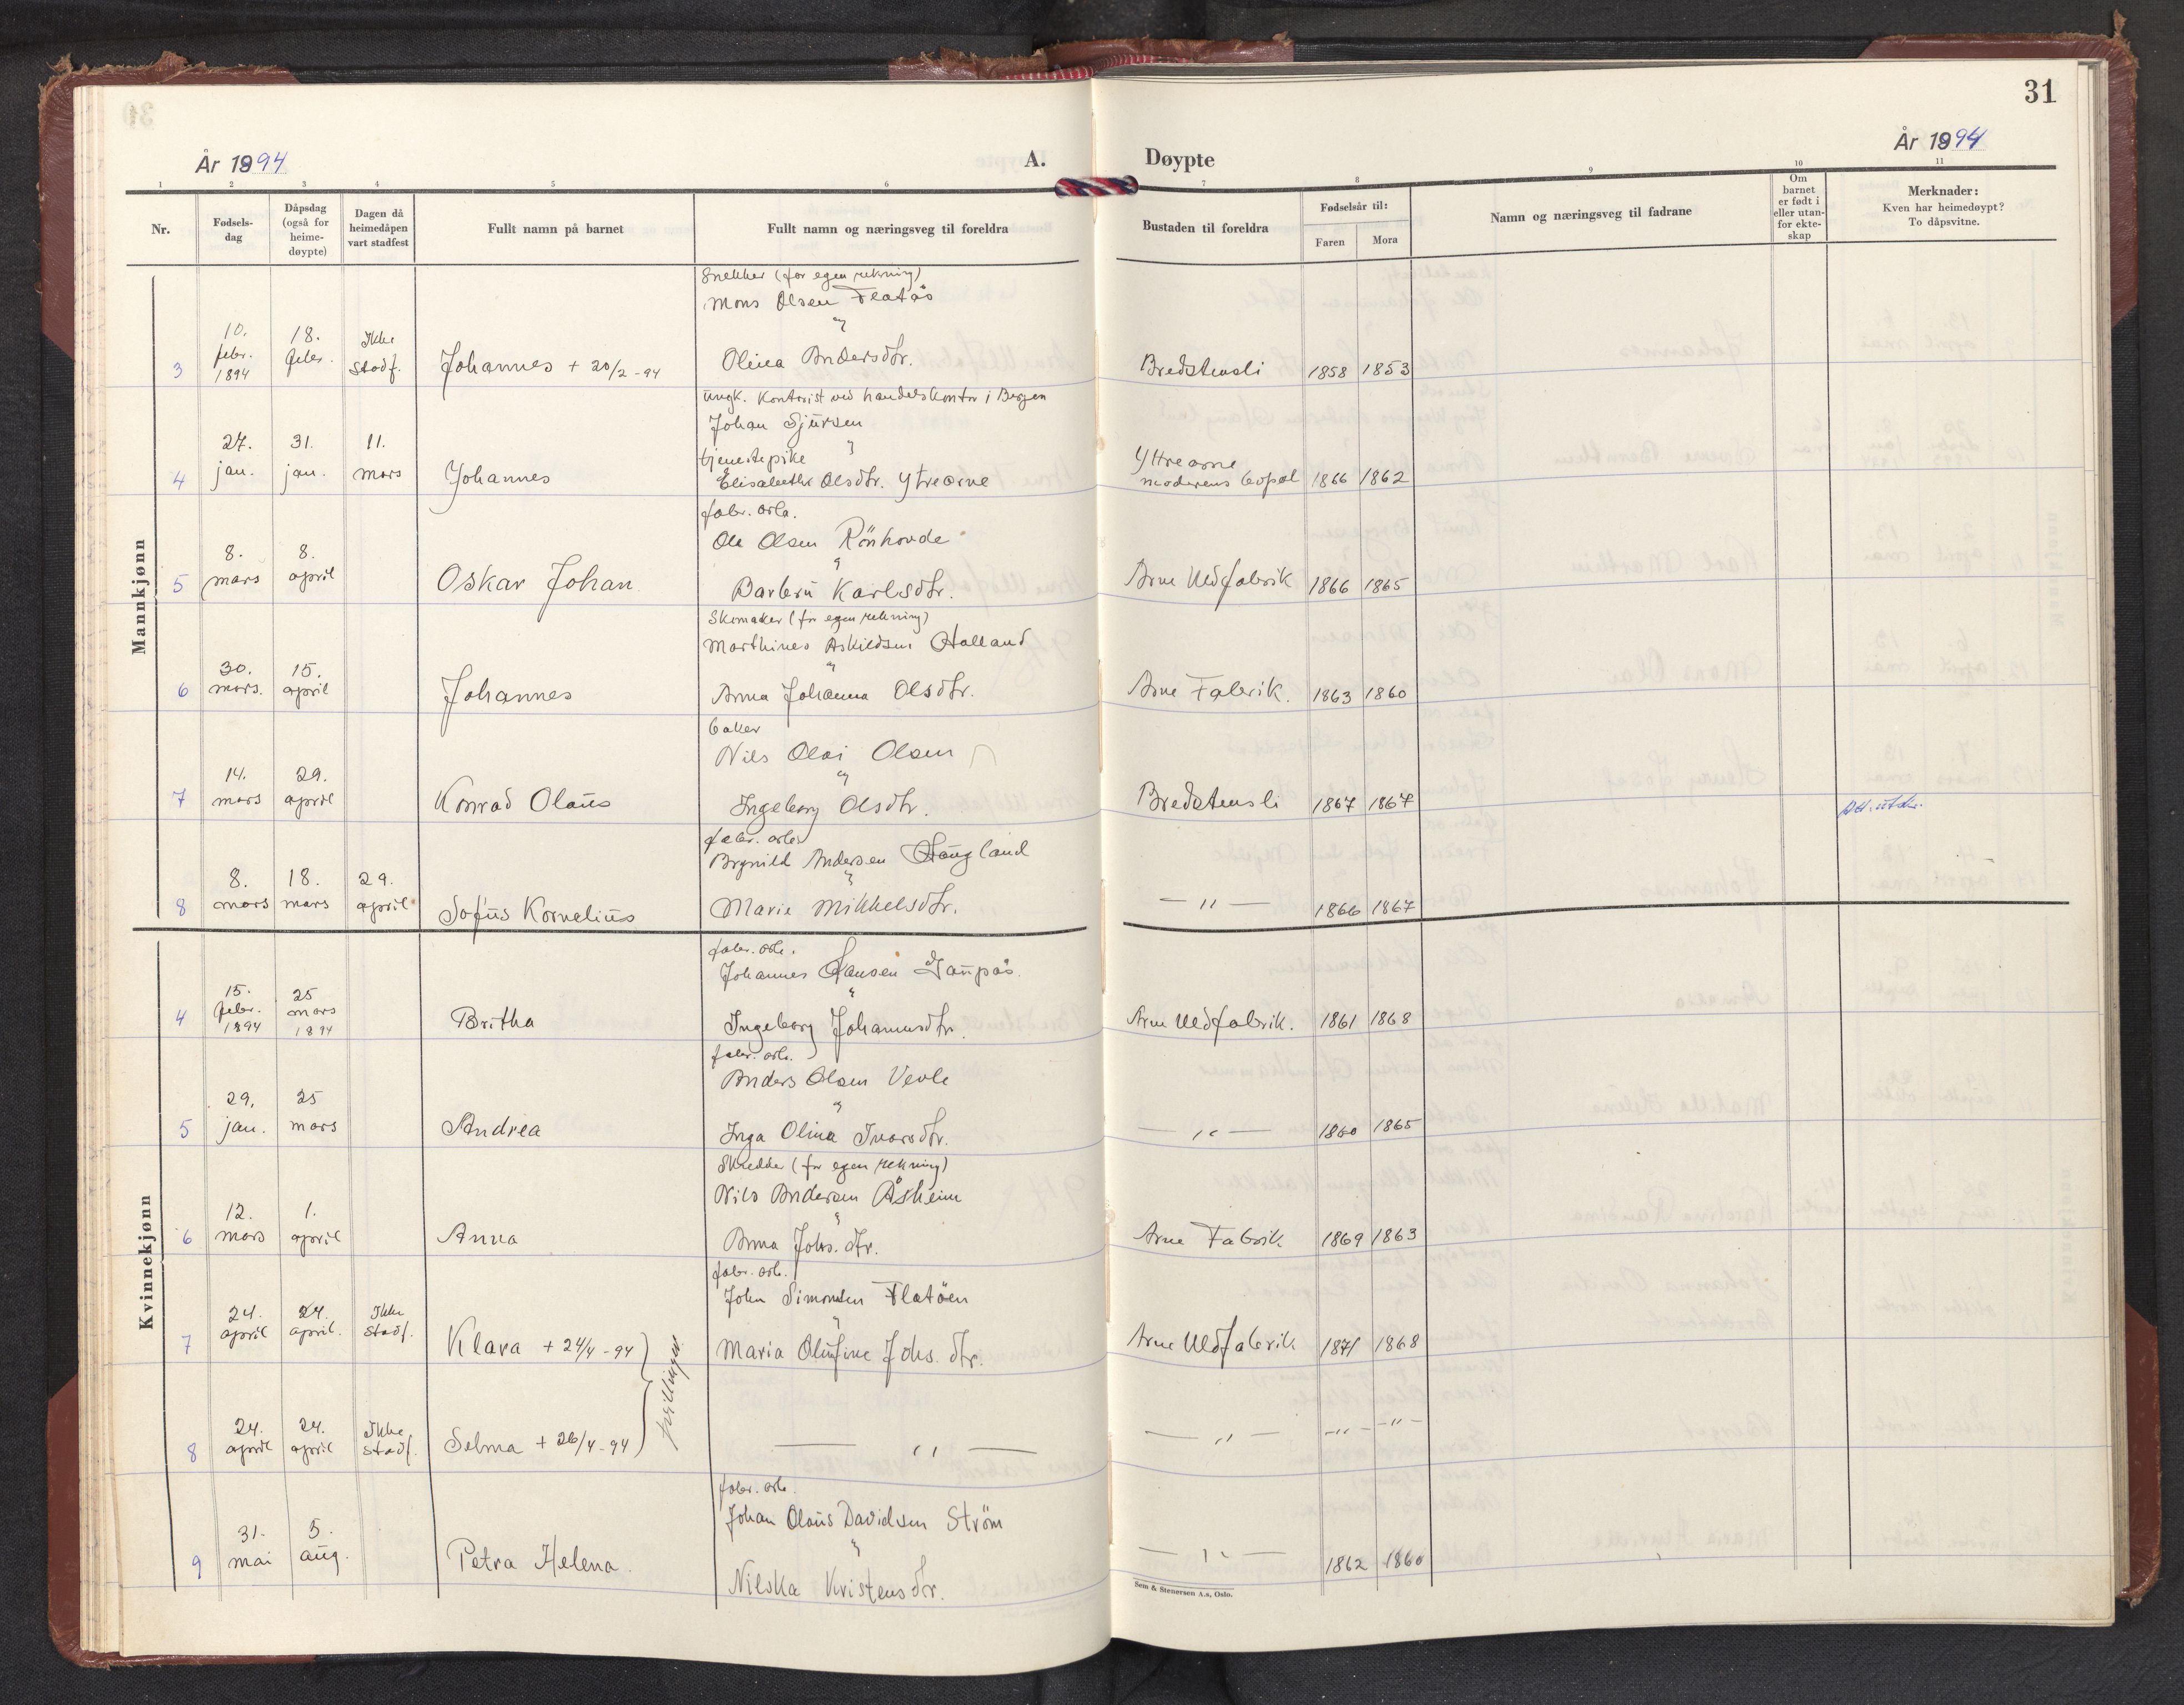 31
År 1894
A.
Døypte
År 1894
1 2 3 4 5 6 7 8 9 10 11
Nr.
Fødsels-
dag
Dåpsdag
(også for
heime-
døypte)
Dagen då
heimedåpen
vart stadfest
Fullt namn på barnet
Fullt namn og næringsveg til foreldra
Bustaden til foreldra
Fødselsår til:
Faren Mora
Namn og næringsveg til fadrane
Om
barnet
er født i
eller utan-
for ekte-
skap
Merknader:
Kven har heimedøypt?
To dåpsvitne.
Mannkjønn
Snekker (for egen rekning)
Mons Olsen Flatås
3 10. febr. 1894 18. febr. Ikke stadf. Johannes + 20/2 - 94 Olina Andersdtr. Bredstensli 1858 1853
ungk. Kontorist ved handelskontor i Bergen
Johan Sjursen
tjenestepike
4 27. jan. 31. jan. 11. mars Johannes Elisabeth Olsdtr. Ytrearne Yttrearne moderens bopæl 1866 1862
fabr. arb.
Ole Olsen Rönhovde
5 8. mars 8. april Oskar Johan Barbru Karlsdtr. Arne Uldfabrik 1866 1865
Skomaker (for egen rekning)
Marthines Askildsen Halland
6 30. mars. 15. april Johannes Anna Johanna Olsdtr. Arne Fabrik. 1863 1860
baker
Nils Olai Olsen
7 14. mars 29. april Konrad Olaus Ingeborg Olsdtr. Bredstensli 1867 1867
fabr. arb.
Brynild Andersen Haugland
8 8. mars 18. mars 29. april Sofus Kornelius Marie Mikkelsdtr. — " — 1866 1867
Kvinnekjønn
fabr. arb.
Johannes Hansen Gaupås
4 15. febr. 1894 25 mars 1894 Britha Ingeborg Johannesdtr. Arne Uldfabrik. 1861 1868
fabr. arb.
Anders Olsen Vevle
5 29. jan. 25 mars Andrea Inga Olina Ivarsdtr. — " — 1860 1865
Skredder (for egen rekning)
Nils Andersen Åsheim
6 12. mars 1. april Anna Anna Johs. dtr. Arne Fabrik 1869 1863
fabr. arb.
John Simonsen Flatöen
7 24. april 24. april. Ikke stadf. Klara + 24/4 - 94 Maria Olufine Johs. dtr. Arne Uldfabrik 1871 1868
tvillinger
8 24. april 24. april Ikke stadf. Selma + 26/4 - 94 — " — — " — — " — — " —
fabr. arb.
Johan Olaus Davidsen Ström
9 31. mai 5. aug. Petra Helena. Nilska Kristensdtr. — " — 1862 1860
Sem & Stenersen A.s, Oslo.